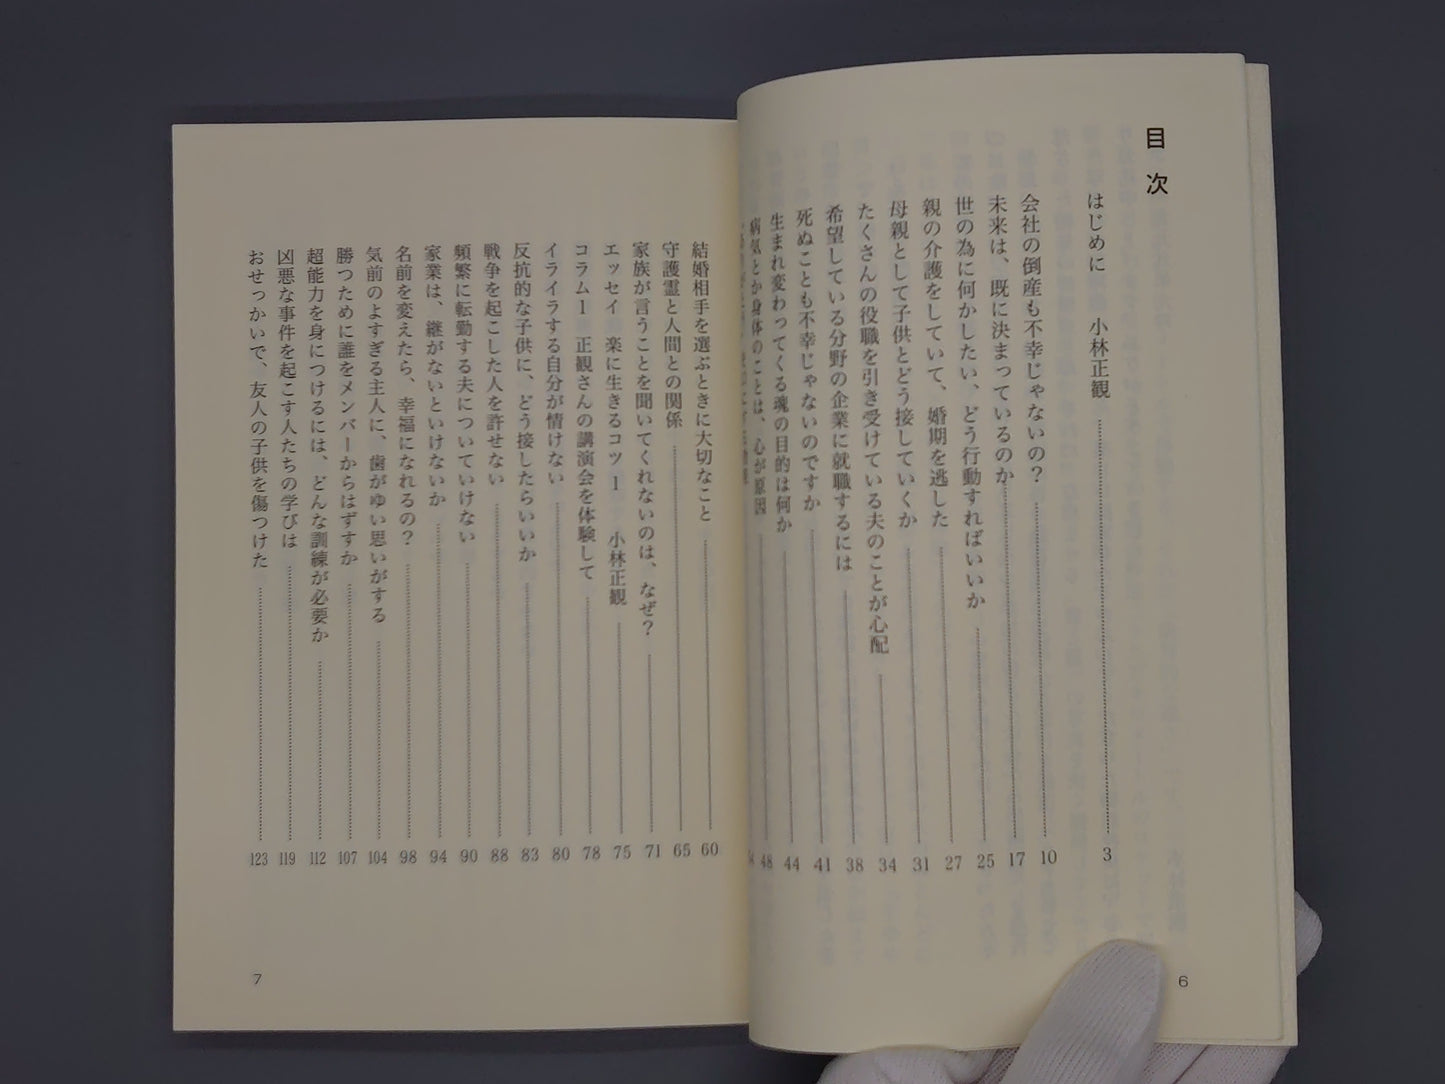 目次
はじめに　小林正観 3
会社の倒産も不幸じゃないの？ 10
未来は、既に決まっているのか 17
世の為に何かしたい、どう行動すればいいか 25
親の介護をしていて、婚期を逃した 27
母親として子供とどう接していくか 31
たくさんの役職を引き受けている夫のことが心配 34
希望している分野の企業に就職するには 38
死ぬことも不幸じゃないのですか 41
生まれ変わってくる魂の目的は何か 44
病気とか身体のことは、心が原因 48
6
結婚相手を選ぶときに大切なこと 60
守護霊と人間との関係 65
家族が言うことを聞いてくれないのは、なぜ？ 71
エッセイ　楽に生きるコツ１　小林正観 75
コラム１　正観さんの講演会を体験して 78
イライラする自分が情けない 80
反抗的な子供に、どう接したらいいか 83
戦争を起こした人を許せない 88
頻繁に転勤する夫についていけない 90
家業は、継がないといけないか 94
名前を変えたら、幸福になれるの？ 98
気前のよすぎる主人に、歯がゆい思いがする 104
勝つために誰をメンバーからはずすか 107
超能力を身につけるには、どんな訓練が必要か 112
凶悪な事件を起こす人たちの学びは 119
おせっかいで、友人の子供を傷つけた 123
7